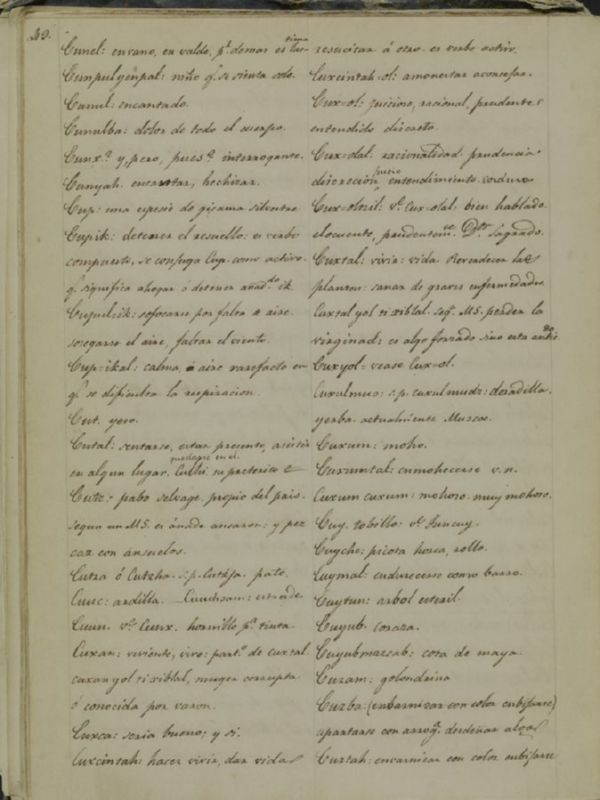 49.
Cunel: en vano, en valde, pª. demas es
Cunpulyenpal: niño q. se sienta solo.
Cunul: encantado.
Cunulba: dolor de todo el cuerpo.
Cunx.ª y, pero, pues.ª interrogante.
Cunyah. encantar, hechizar.
Cup: una especie de gicama silvestre
Cupik: detener el resuello: es verbo
compuesto, se conjuga Cup. como activo.
q. significa ahogar ó detener añad.do ik
Cupulik: sofocarse por falta de aire.
sosegarse el aire, faltar el viento.
Cup-ikal: calma, ó aire rarefacto en
q. se dificulta la respiracion.
Cut. yeso.
Cutal: sentarse, estar presente, asistir
en algun lugar. Culhi su preterito
Cutz: pabo selvage, propio del pais.
segun un M.S. es ánade ansaron: y pez
caz con ansuelos.
Cutza ó Cutzha. s.p. Cutzja. pato.
Cuuc: ardilla.
Cuun. v.e Cunx. hornillo pª. tinta.
Cuxan: viviente, vivo: part.º de cuxtal.
cuxan yol ti xiblal, muger corrupta
ó conocida por varon.
Cuxca: seria bueno; y si.
Cuxcintah: hacer vivir, dar vida
resucitar á otro. es verbo activo.
Cuxcintah-ol: amonestar aconsejar.
Cux-ol: juicioso, racional, prudente
entendido discreto.
Cux-olal. racionalidad. prudencia
discrecion juicio entendimiento. cordura
Cux-oltzil: v.e Cux-olal. bien hablado
elocuente, prudentem.te D.to Sagrado.
Cuxtal: vivir: vida Revardecer las
plantas: sanar de graves enfermedades
Cuxtal yol ti xiblal. seg.n M.S. perder la
virginidad: es algo forzado sino esta
Cuxyol: vease Cux-ol.
Cuxulmuc: s.p. cuxulmudz: doradilla.
yerba. actualmente Muscoc.
Cuxum: moho.
Cuxumtal: enmohecerse v.n.
Cuxum cuxum: mohoso. muy mohoso.
Cuy. tobillo: v.e Juncuy.
Cuyche: picota horca, rollo.
Cuymal: endurecerse como barro.
Cuytun: arbol esteril.
Cuyub. coraza.
Cuyubmazcab: cota de maya.
Cuzam: golondrina
Cuzba: (enbarnizar con color enbijarse)
apartarse con arrog.ª desdeñar algo
Cuztah: envarnizar con color enbijarse